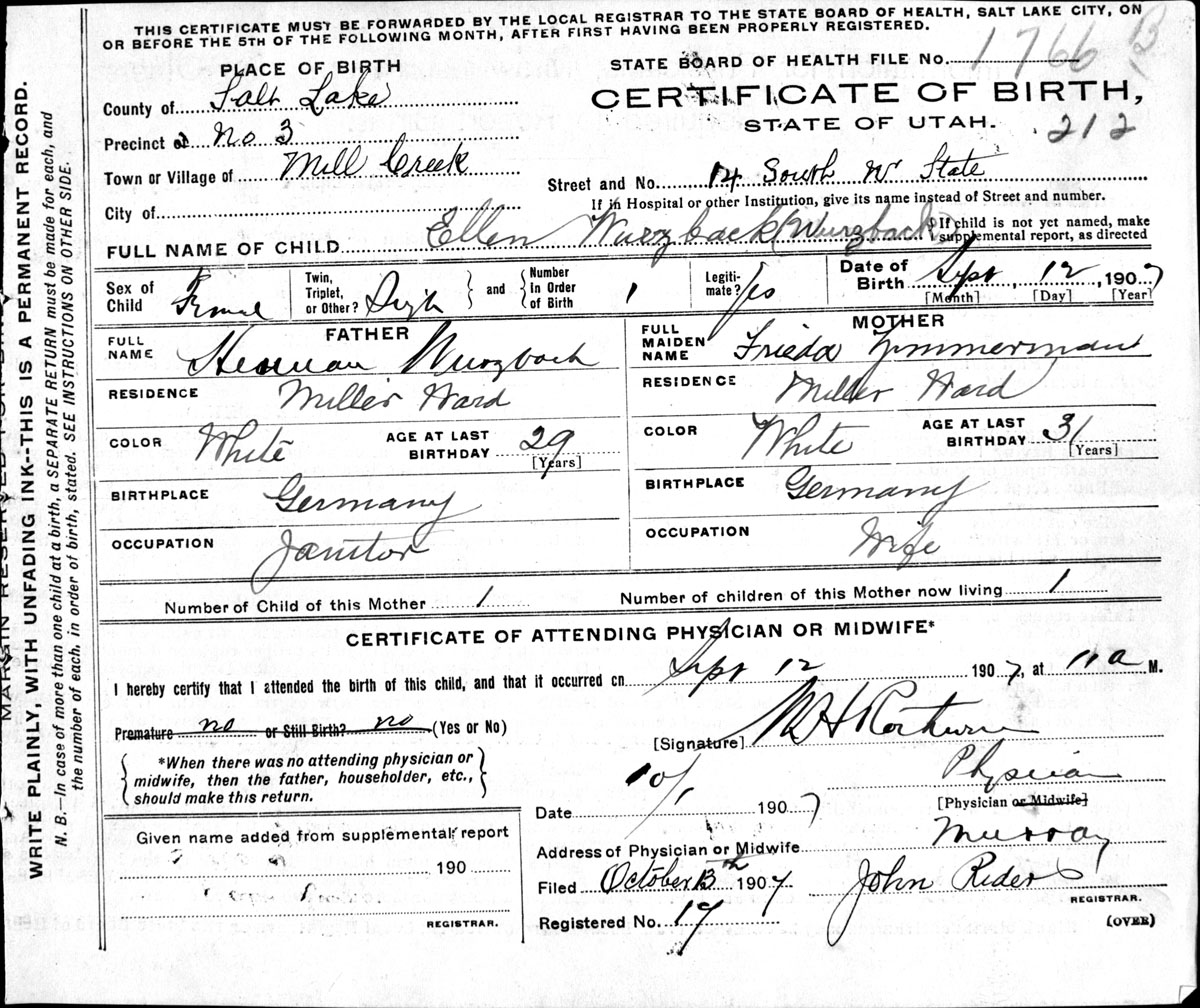 THIS CERTIFICATE MUST BE FORWARDED BY THE LOCAL REGISTRAR TO THE STATE BOARD OF HEALTH, SALT LAKE CITY, ON
OR BEFORE THE 5TH OF THE FOLLOWING MONTH, AFTER FIRST HAVING BEEN PROPERLY REGISTERED.
PLACE OF BIRTH
STATE BOARD OF HEALTH FILE No. 1766 B
County of Salt Lake
CERTIFICATE OF BIRTH,
Precinct No 3
STATE OF UTAH. 212
Town or Village of Mill Creek
Street and No. 14 South W State
If in Hospital or other Institution, give its name instead of Street and number.
City of
FULL NAME OF CHILD Ellen Wurzback (Wurzbach)
If child is not yet named, make
supplemental report, as directed
Sex of Child Female
Twin, Triplet, or Other?
and Number In Order of Birth 1
Legiti-mate? Yes
Date of Birth Sept 12, 1907
[Month] [Day] [Year]
FATHER
FULL NAME Herman Wurzbach
RESIDENCE Miller Ward
COLOR White
AGE AT LAST BIRTHDAY 29
[Years]
BIRTHPLACE Germany
OCCUPATION Janitor
MOTHER
FULL MAIDEN NAME Frieda Zimmermann
RESIDENCE Miller Ward
COLOR White
AGE AT LAST BIRTHDAY 31
[Years]
BIRTHPLACE Germany
OCCUPATION Wife
Number of Child of this Mother 1
Number of children of this Mother now living 1
CERTIFICATE OF ATTENDING PHYSICIAN OR MIDWIFE*
I hereby certify that I attended the birth of this child, and that it occurred on Sept 12 1907, at 11 a M.
Premature no or Still Birth? no (Yes or No)
[Signature]
*When there was no attending physician or
midwife, then the father, householder, etc.,
should make this return.
Physician
[Physician or Midwife]
Date 10/1 1907
Address of Physician or Midwife Murray
Given name added from supplemental report
190
REGISTRAR.
Filed October 13th 1907 John Rider
REGISTRAR.
Registered No. 19
(OVER)
MARGIN RESERVED FOR BINDING
WRITE PLAINLY, WITH UNFADING INK--THIS IS A PERMANENT RECORD.
N. B.—In case of more than one child at a birth, a SEPARATE RETURN must be made for each, and
the number of each, in order of birth, stated. SEE INSTRUCTIONS ON OTHER SIDE.